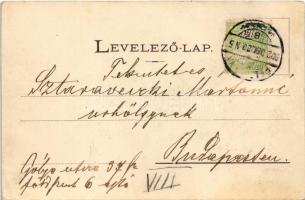 LEVELEZŐ-LAP.
Tekintetes
Sztaraveczki Mártonné
urhölgynek
Budapesten.
Gólya utcza 37 fsz
földszint 6 ajtó
VIII